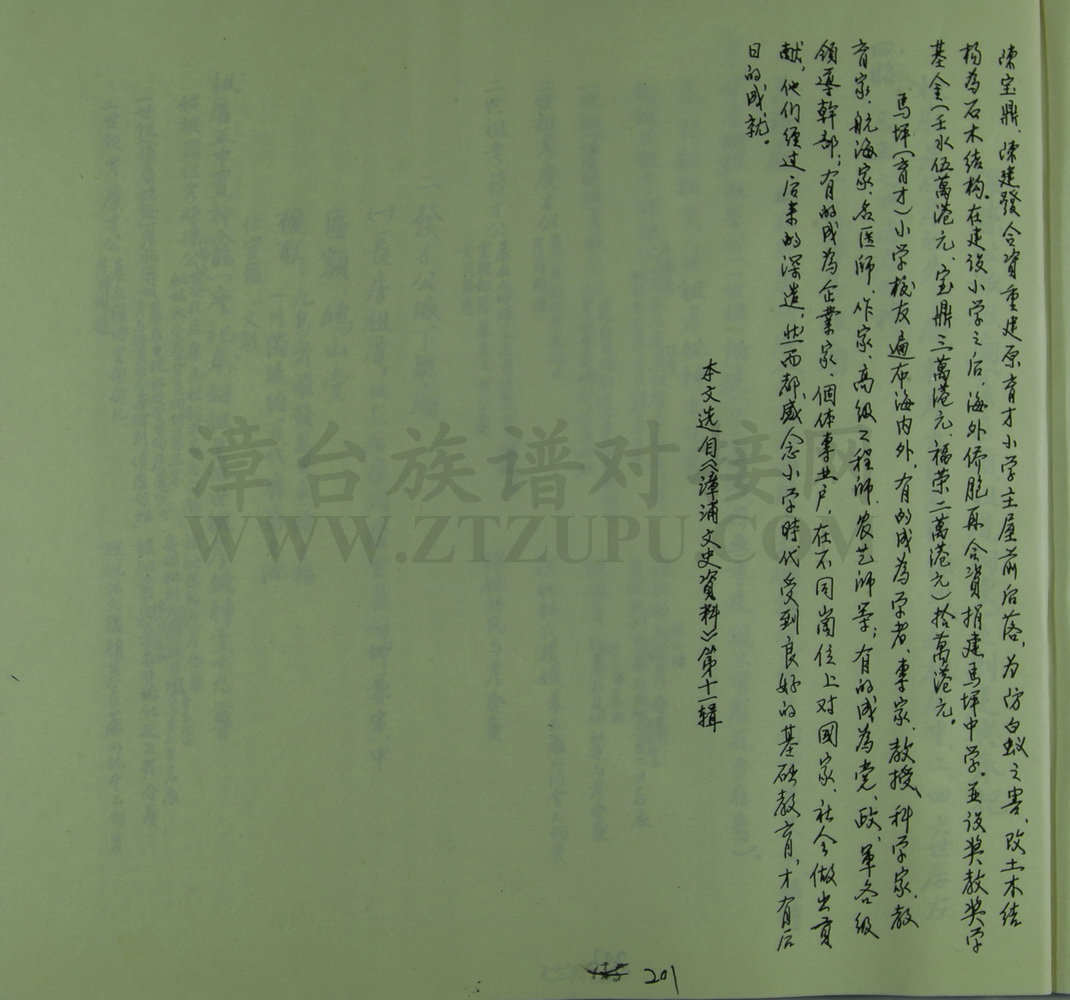 陳宝鼎、陳建發合資重建原育才小学主屋前后落，为防白蚁之害，改土木结
构為石木结构。在建设小学之后，海外侨胞再合資捐建馬坪中学，並设奖教奖学
基金（壬水伍萬港元、宝鼎三萬港元、福荣二萬港元）拾萬港元。
馬坪（育才）小学校友遍布海内外，有的成為学者、專家、教授、科学家、教
育家、航海家、名医师、作家、高级工程师、农艺师等；有的成為党、政、軍各级
领導幹部；有的成為企業家、個体專业户，在不同崗位上对國家、社会做出貢
献。他们经过后来的深造，然而都感念小学時代受到良好的基础教育，才有后
日的成就。
本文选自《漳浦文史資料》第十一辑
201
漳台族谱对接网
WWW.ZTZUPU.COM